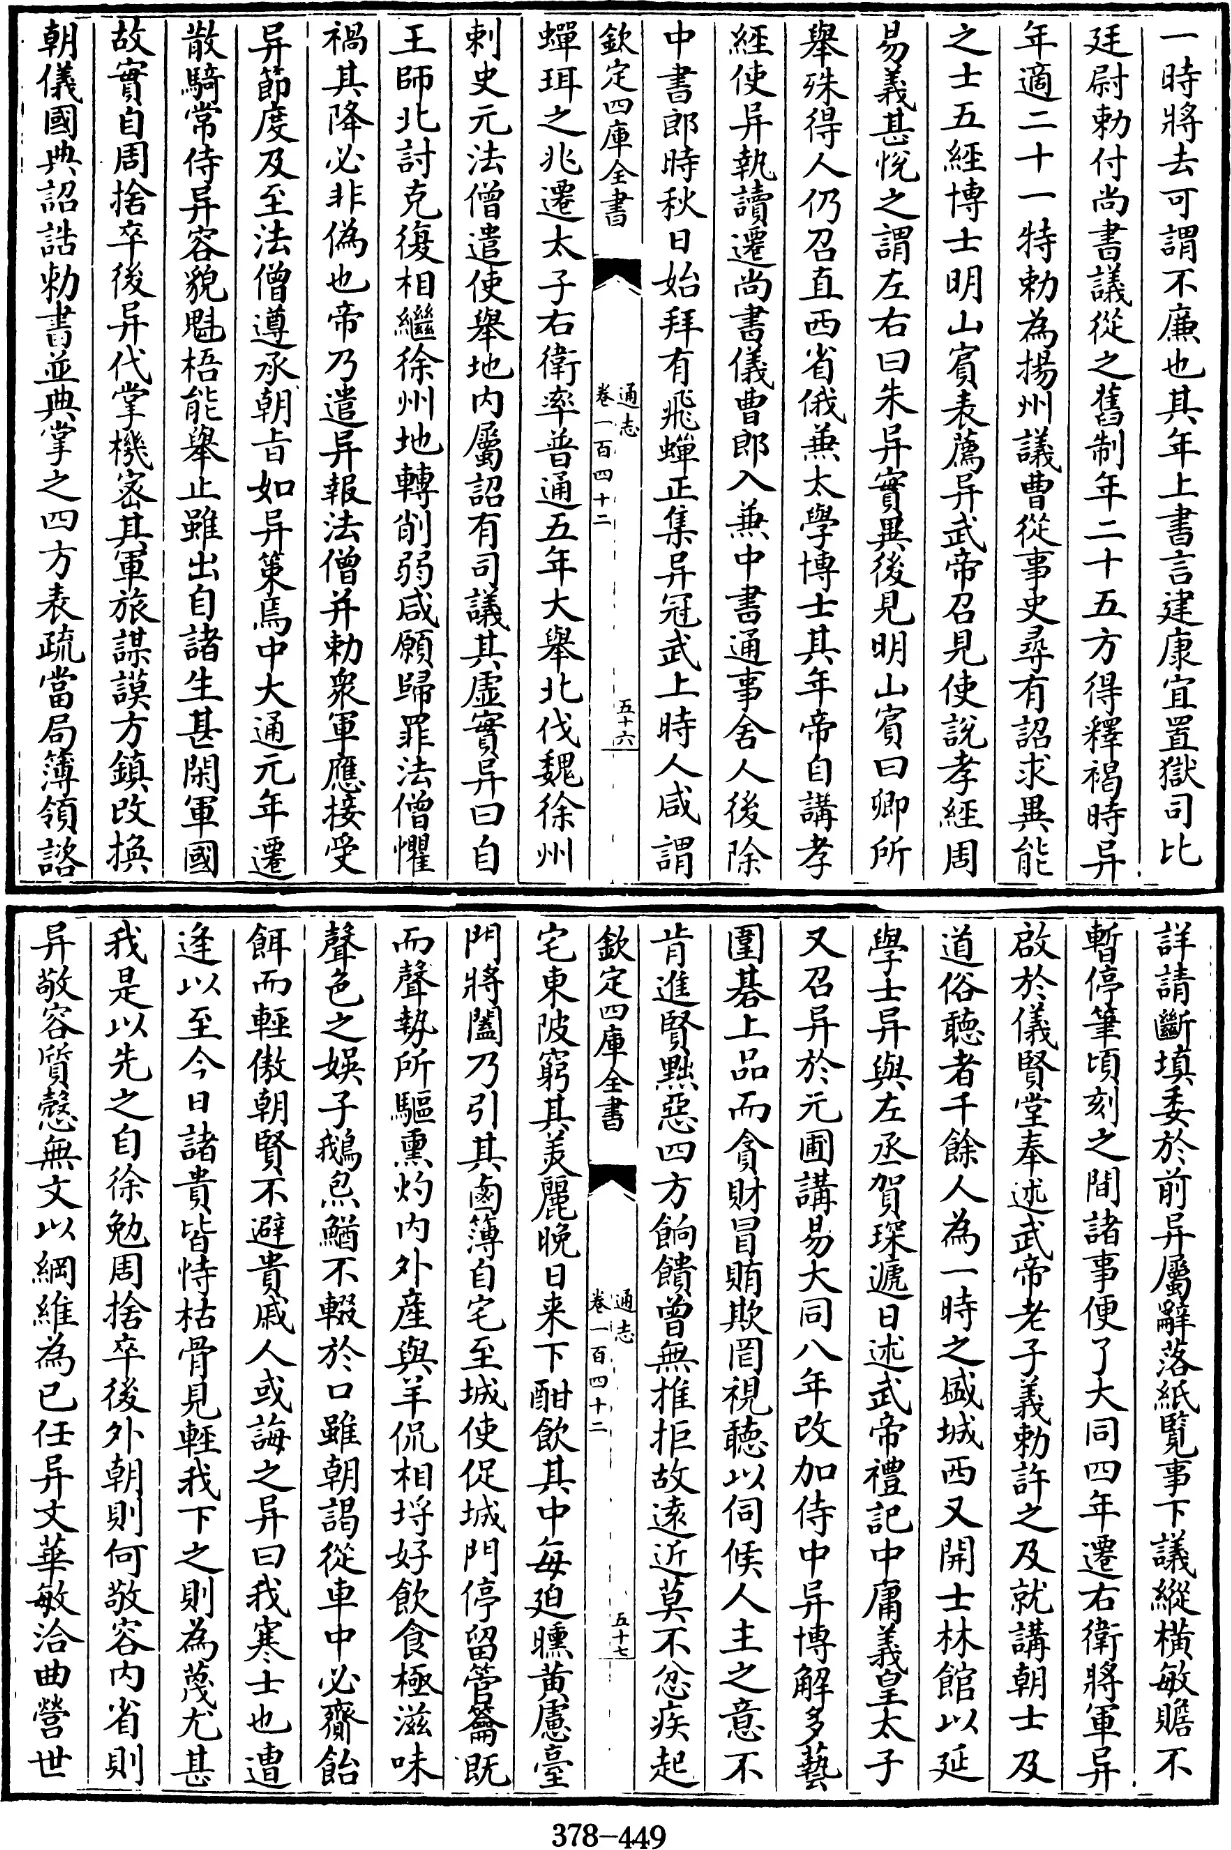 一時將去可謂不廉也其年上書言建康宜置獄司比
廷尉勅付尚書議從之舊制年二十五方得釋褐時异
年適二十一特勅為揚州議曹從事史尋有詔求異能
之士五經博士明山賓表薦异武帝召見使說孝經周
易義甚悅之謂左右曰朱异實異後見明山賓曰卿所
舉殊得人仍召直西省俄兼太學博士其年帝自講孝
經使异執讀遷尚書儀曹郎入兼中書通事舍人後除
中書郎時秋日始拜有飛蟬正集异冠武上時人咸謂
欽定四庫全書
通志
卷一百四十二
五十六
蟬珥之兆遷太子右衛率普通五年大舉北伐魏徐州
刺史元法僧遣使舉地內屬詔有司議其虛實异曰自
王師北討克復相繼徐州地轉削弱咸願歸罪法僧懼
禍其降必非偽也帝乃遣异報法僧并勅衆軍應接受
异節度及至法僧遵承朝旨如异策焉中大通元年遷
散騎常侍异容貌魁梧能舉止雖出自諸生甚閑軍國
故實自周捨卒後异代掌機密其軍旅謀謨方鎮改換
朝儀國典詔誥勅書並典掌之四方表疏當局簿領諮
詳請斷填委於前异屬辭落紙覧事下議縱橫敏贍不
暫停筆頃刻之間諸事便了大同四年遷右衛將軍异
啟於儀賢堂奉述武帝老子義勅許之及就講朝士及
道俗聽者千餘人為一時之盛城西又開士林館以延
學士异與左丞賀琛遞日述武帝禮記中庸義皇太子
又召异於元圃講易大同八年改加侍中异博解多藝
圍碁上品而貪財冒賄欺罔視聽以伺候人主之意不
肯進賢黜惡四方餉饋曾無推拒故遠近莫不忿疾起
欽定四庫全書
通志
卷一百四十二
五十七
宅東陂窮其美麗晚日来下酣飲其中每廹曛黄慮臺
門將闔乃引其鹵簿自宅至城使促城門停留管籥既
而聲勢所驅熏灼内外產與羊侃相埒好飲食極滋味
聲色之娛子鵝炰鰌不輟於口雖朝謁從車中必齎飴
餌而輕傲朝賢不避貴戚人或誨之异曰我寒士也遭
逢以至今日諸貴皆恃枯骨見輕我下之則為蔑尤甚
我是以先之自徐勉周捨卒後外朝則何敬容内省則
异敬容質慤無文以綱維為己任异文華敏洽曲營世
378-449